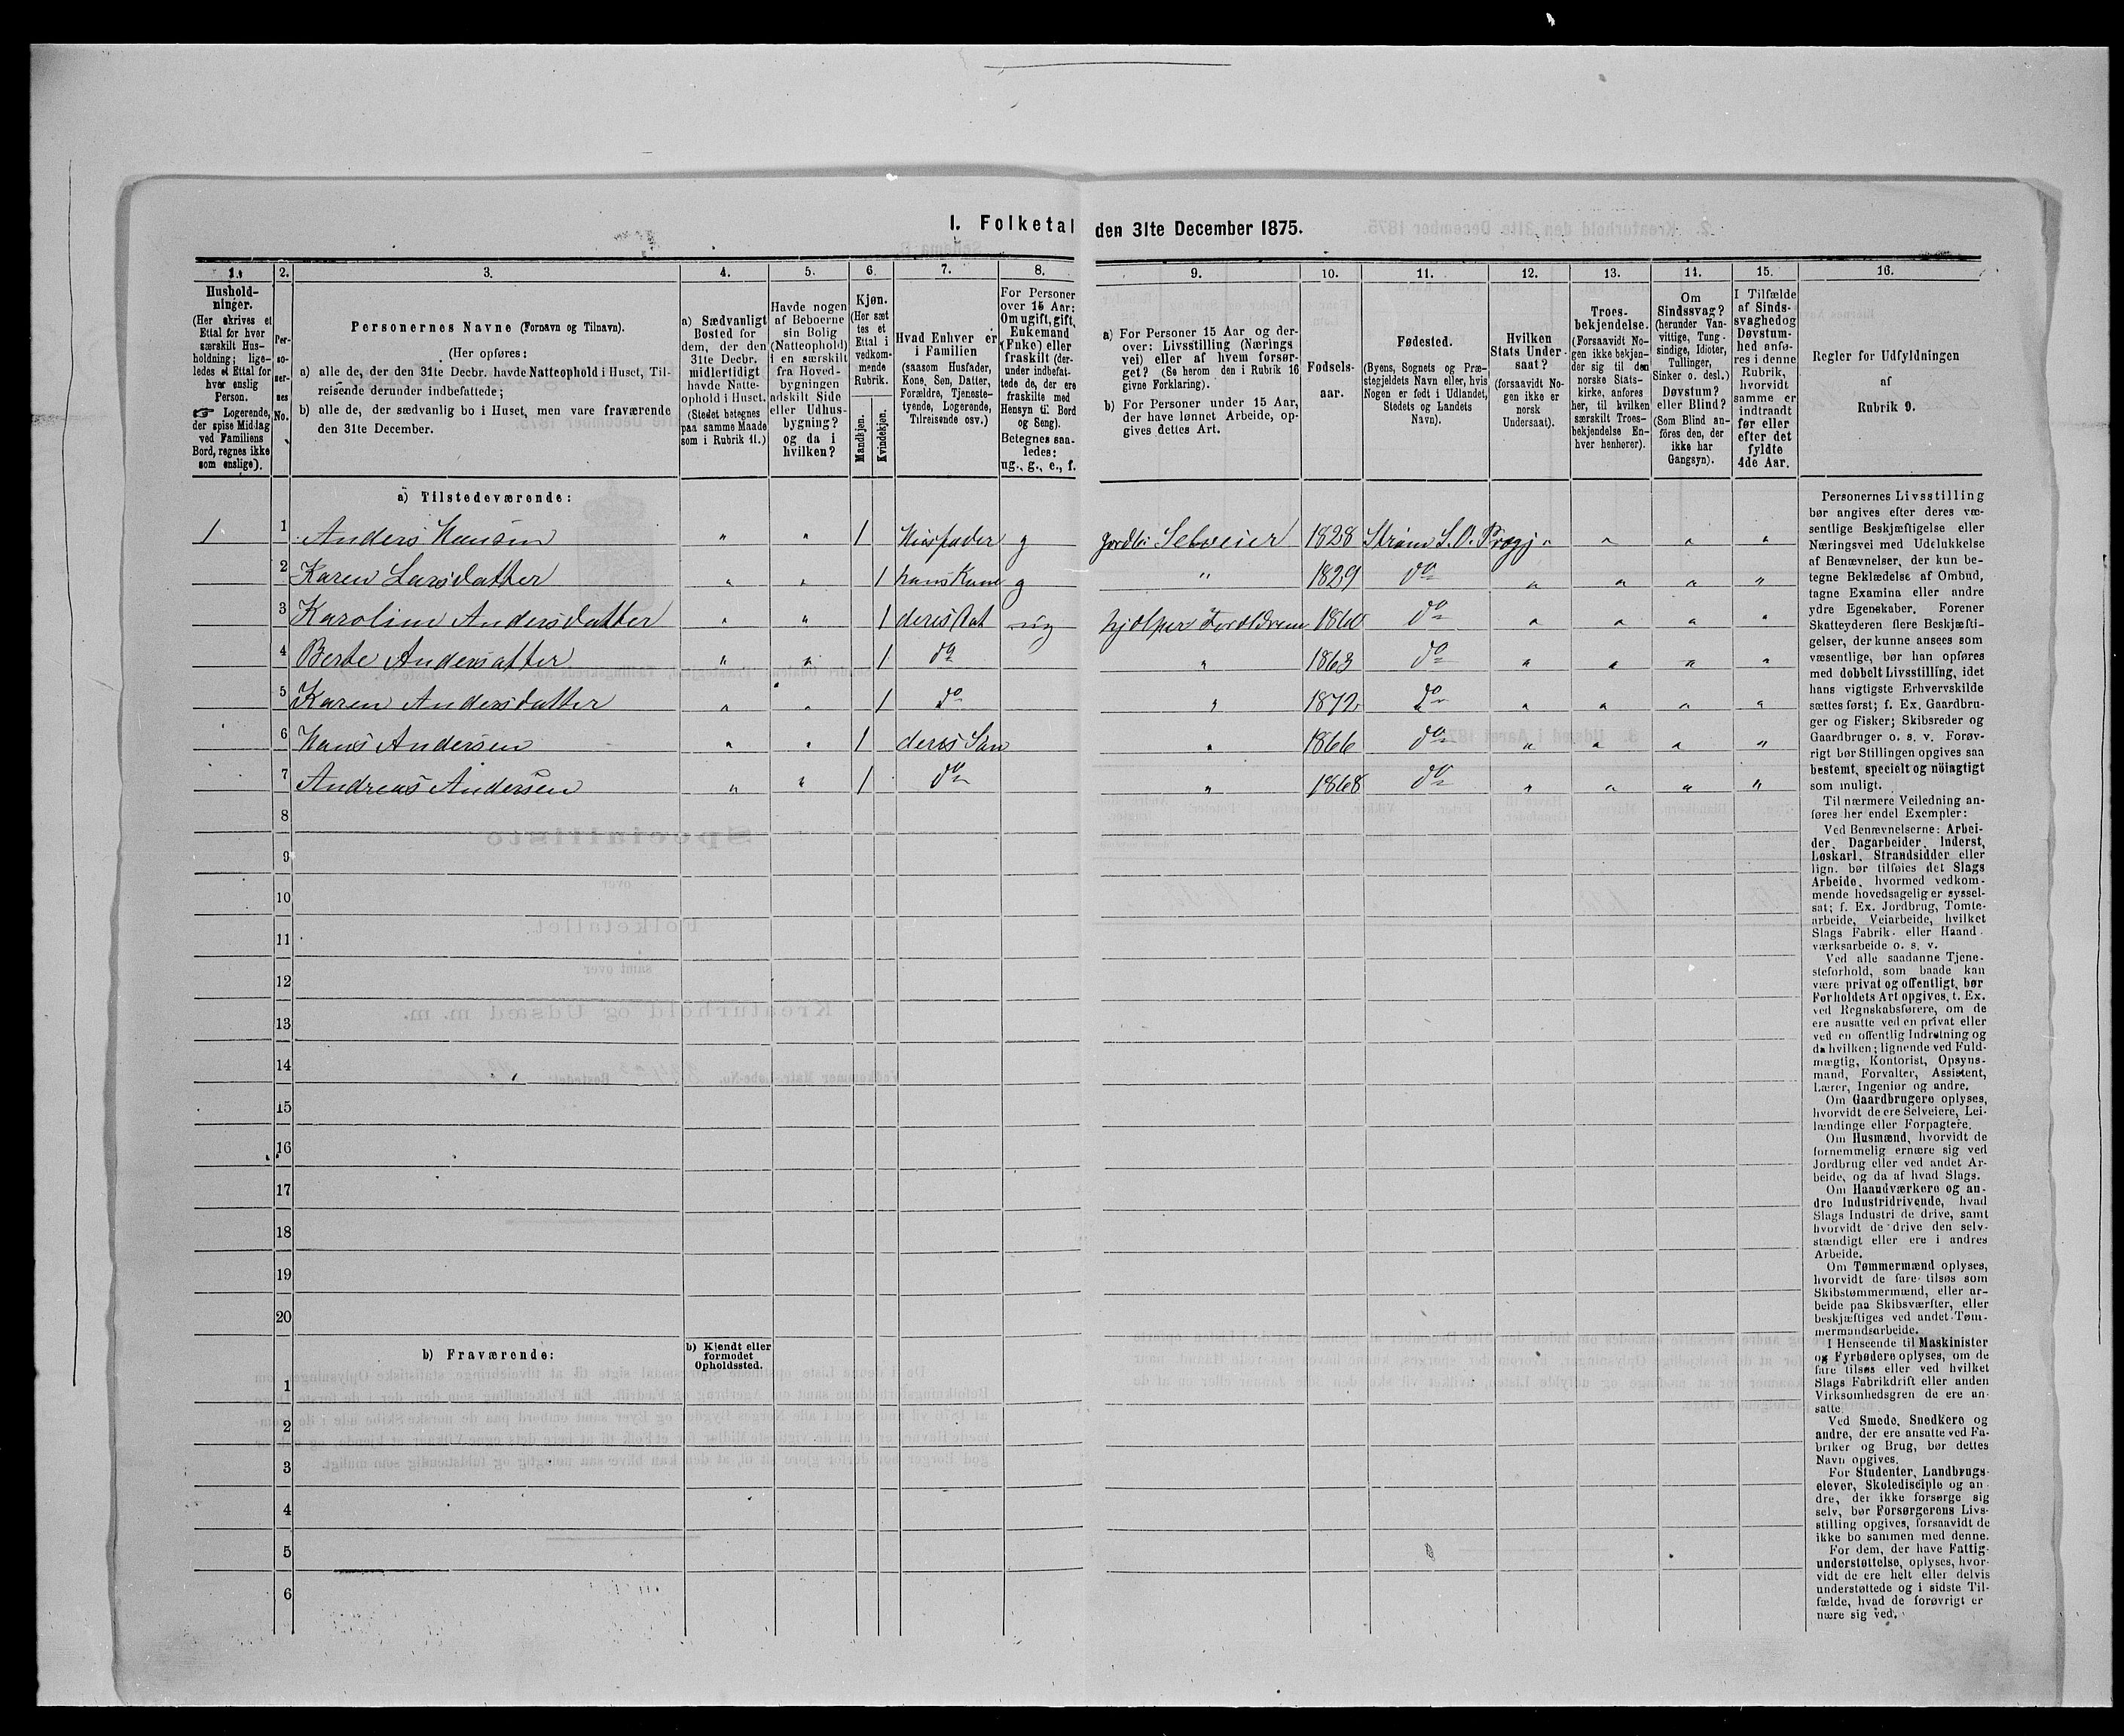 I. Folketal den 31te December 1875.
1. 2. 3. 4. 5. 6. 7. 8. 9. 10. 11. 12. 13. 11. 15. 16.
Hushold-
ninger.
(Her skrives et
Ettal for hver
særskilt Hus-
holdning; lige-
ledes et Ettal for
hver enslig
Person.
☞ Logerende,
der spise Middag
ved Familiens
Bord, regnes ikke
som enslige).
Per-
so-
ner-
nes
No.
Personernes Navne (Fornavn og Tilnavn).
(Her opføres:
a) alle de, der den 31te Decbr. havde Natteophold i Huset, Til-
reisende derunder indbefattede;
b) alle de, der sædvanlig bo i Huset, men vare fraværende
den 31te December.
a) Sædvanligt
Bosted for
dem, der den
31te Decbr.
midlertidigt
havde Natte-
ophold i Huset.
(Stedet betegnes
paa samme Maade
som i Rubrik 11.)
Havde nogen
af Beboerne
sin Bolig
(Natteophold)
i en særskilt
fra Hoved-
bygningen
adskilt Side
eller Udhus-
bygning?
og da i
hvilken?
Kjøn.
(Her sæt
tes et
Ettal i
vedkom-
mende
Rubrik.
Mandkjøn.
Kvindekjøn.
Hvad Enhver er
i Familien
(saasom Husfader,
Kone, Søn, Datter,
Forældre, Tjeneste-
tyende, Logerende,
Tilreisende osv.)
For Personer
over 15 Aar:
Om ugift, gift,
Enkemand
(Enke) eller
fraskilt (der-
under indbefat-
tede de, der ere
fraskilte med
Hensyn til Bord
og Seng).
Betegnes saa-
ledes:
ug., g., e., f.
a) For Personer 15 Aar og der-
over: Livsstilling (Nærings
vei) eller af hvem forsør-
get? (Se herom den i Rubrik 16
givne Forklaring).
b) For Personer under 15 Aar,
der have lønnet Arbeide, op-
gives dettes Art.
Fødsels-
aar.
Fødested.
(Byens, Sognets og Præ-
stegjeldets Navn eller, hvis
Nogen er født i Udlandet,
Stedets og Landets
Navn).
Hvilken
Stats Under-
saat?
(forsaavidt No-
gen ikke er
norsk
Undersaat).
Troes-
bekjendelse.
(Forsaavidt No-
gen ikke bekjen-
der sig til den
norske Stats-
kirke, anføres
her, til hvilken
særskilt Troes-
bekjendelse En-
hver henhører).
Om
Sindssvag?
(herunder Van-
vittige, Tung-
sindige, Idioter,
Tullinger,
Sinker o. desl.)
Døvstum?
eller Blind?
(Som Blind an-
føres den, der
ikke har
Gangsyn).
I Tilfælde
af Sinds-
svaghed og
Døvstum-
hed anfø-
res i denne
Rubrik,
hvorvidt
samme er
indtraadt
før eller
efter det
fyldte
4de Aar.
Regler for Udfyldningen
af
Rubrik 9.
a) Tilstedeværende:
1 1 Anders Hansen " " 1 Husfader g Jordbr Selveier 1828 Strøm S. O. Prægj " " " "
2 Karen Larsdatter " " 1 hans Kone g " 1829 do " " " "
3 Karoline Andersdatter " " 1 deres Dat ug hjælper Forældrene 1860 do " " " "
4 Berte Andersatter " " 1 do " 1863 do " " " "
5 Karen Andersdatter " " 1 do " 1872 do " " " "
6 Hans Andersen " " 1 deres Søn " 1866 do " " " "
7 Andreas Andersen " " 1 do " 1868 do " " " "
8
9
10
11
12
13
14
15
16
17
18
19
20
b) Fraværende:
b) Kjendt eller
formodet
Opholdssted.
1
2
3
4
5
6
Personernes Livsstilling
bør angives efter deres væ-
sentlige Beskjæftigelse eller
Næringsvei med Udelukkelse
af Benævnelser, der kun be-
tegne Beklædelse af Ombud,
tagne Examina eller andre
ydre Egenskaber. Forener
Skatteyderen flere Beskjæfti-
gelser, der kunne ansees som
væsentlige, bør han opføres
med dobbelt Livsstilling, idet
hans vigtigste Erhvervskilde
sættes først; f. Ex. Gaardbru-
ger og Fisker; Skibsreder og
Gaardbruger o. s. v. Forøv-
rigt bør Stillingen opgives saa
bestemt, specielt og nöiagtigt
som muligt.
Til nærmere Veiledning an-
føres her endel Exempler:
Ved Benævnelserne: Arbei-
der, Dagarbeider, Inderst,
Løskarl, Strandsidder eller
lign. bør tilføies det Slags
Arbeide, hvormed vedkom-
mende hovedsagelig er syssel-
sat; f. Ex. Jordbrug, Tomte-
arbeide, Veiarbeide, hvilket
Slags Fabrik- eller Haand-
værksarbeide o. s. v.
Ved alle saadanne Tjene-
steforhold, som baade kan
være privat og offentligt, bør
Forholdets Art opgives, f. Ex.
ved Regnskabsførere, om de
ere ansatte ved en privat eller
ved en offentlig Indretning og
da hvilken; lignende ved Fuld-
mægtig, Kontorist, Opsyns-
mand, Forvalter, Assistent,
Lærer, Ingeniør og andre.
Om Gaardbrugere oplyses,
hvorvidt de ere Selveiere, Lei-
lændinge eller Forpagtere.
Om Husmænd, hvorvidt de
fornemmelig ernære sig ved
Jordbrug eller ved andet Ar-
beide, og da af hvad Slags.
Om Haandværkere og an-
dre Industridrivende, hvad
Slags Industri de drive, samt
hvorvidt de drive den selv-
stændigt eller ere i andres
Arbeide.
Om Tømmermænd oplyses,
hvorvidt de fare tilsøs som
Skibstømmermænd, eller ar-
beide paa Skibsværfter, eller
beskjæftiges ved andet Tøm-
mermandsarbeide.
I Henseende til Maskinister
og Fyrbødere oplyses, om de
fare tilsøs eller ved hvilket
Slags Fabrikdrift eller anden
Virksomhedsgren de ere an-
satte.
Ved Smede, Snedkere og
andre, der ere ansatte ved Fa-
briker og Brug, bør dettes
Navn opgives.
For Studenter, Landbrugs-
elever, Skoledisciple og an-
dre, der ikke forsørge sig
selv, bør Forsørgerens Livs-
stilling opgives, forsaavidt de
ikke bo sammen med denne.
For dem, der have Fattig-
understøttelse, oplyses, hvor-
vidt de ere helt eller delvis
understøttede og i sidste Til-
fælde, hvad de forøvrigt er
nære sig ved.